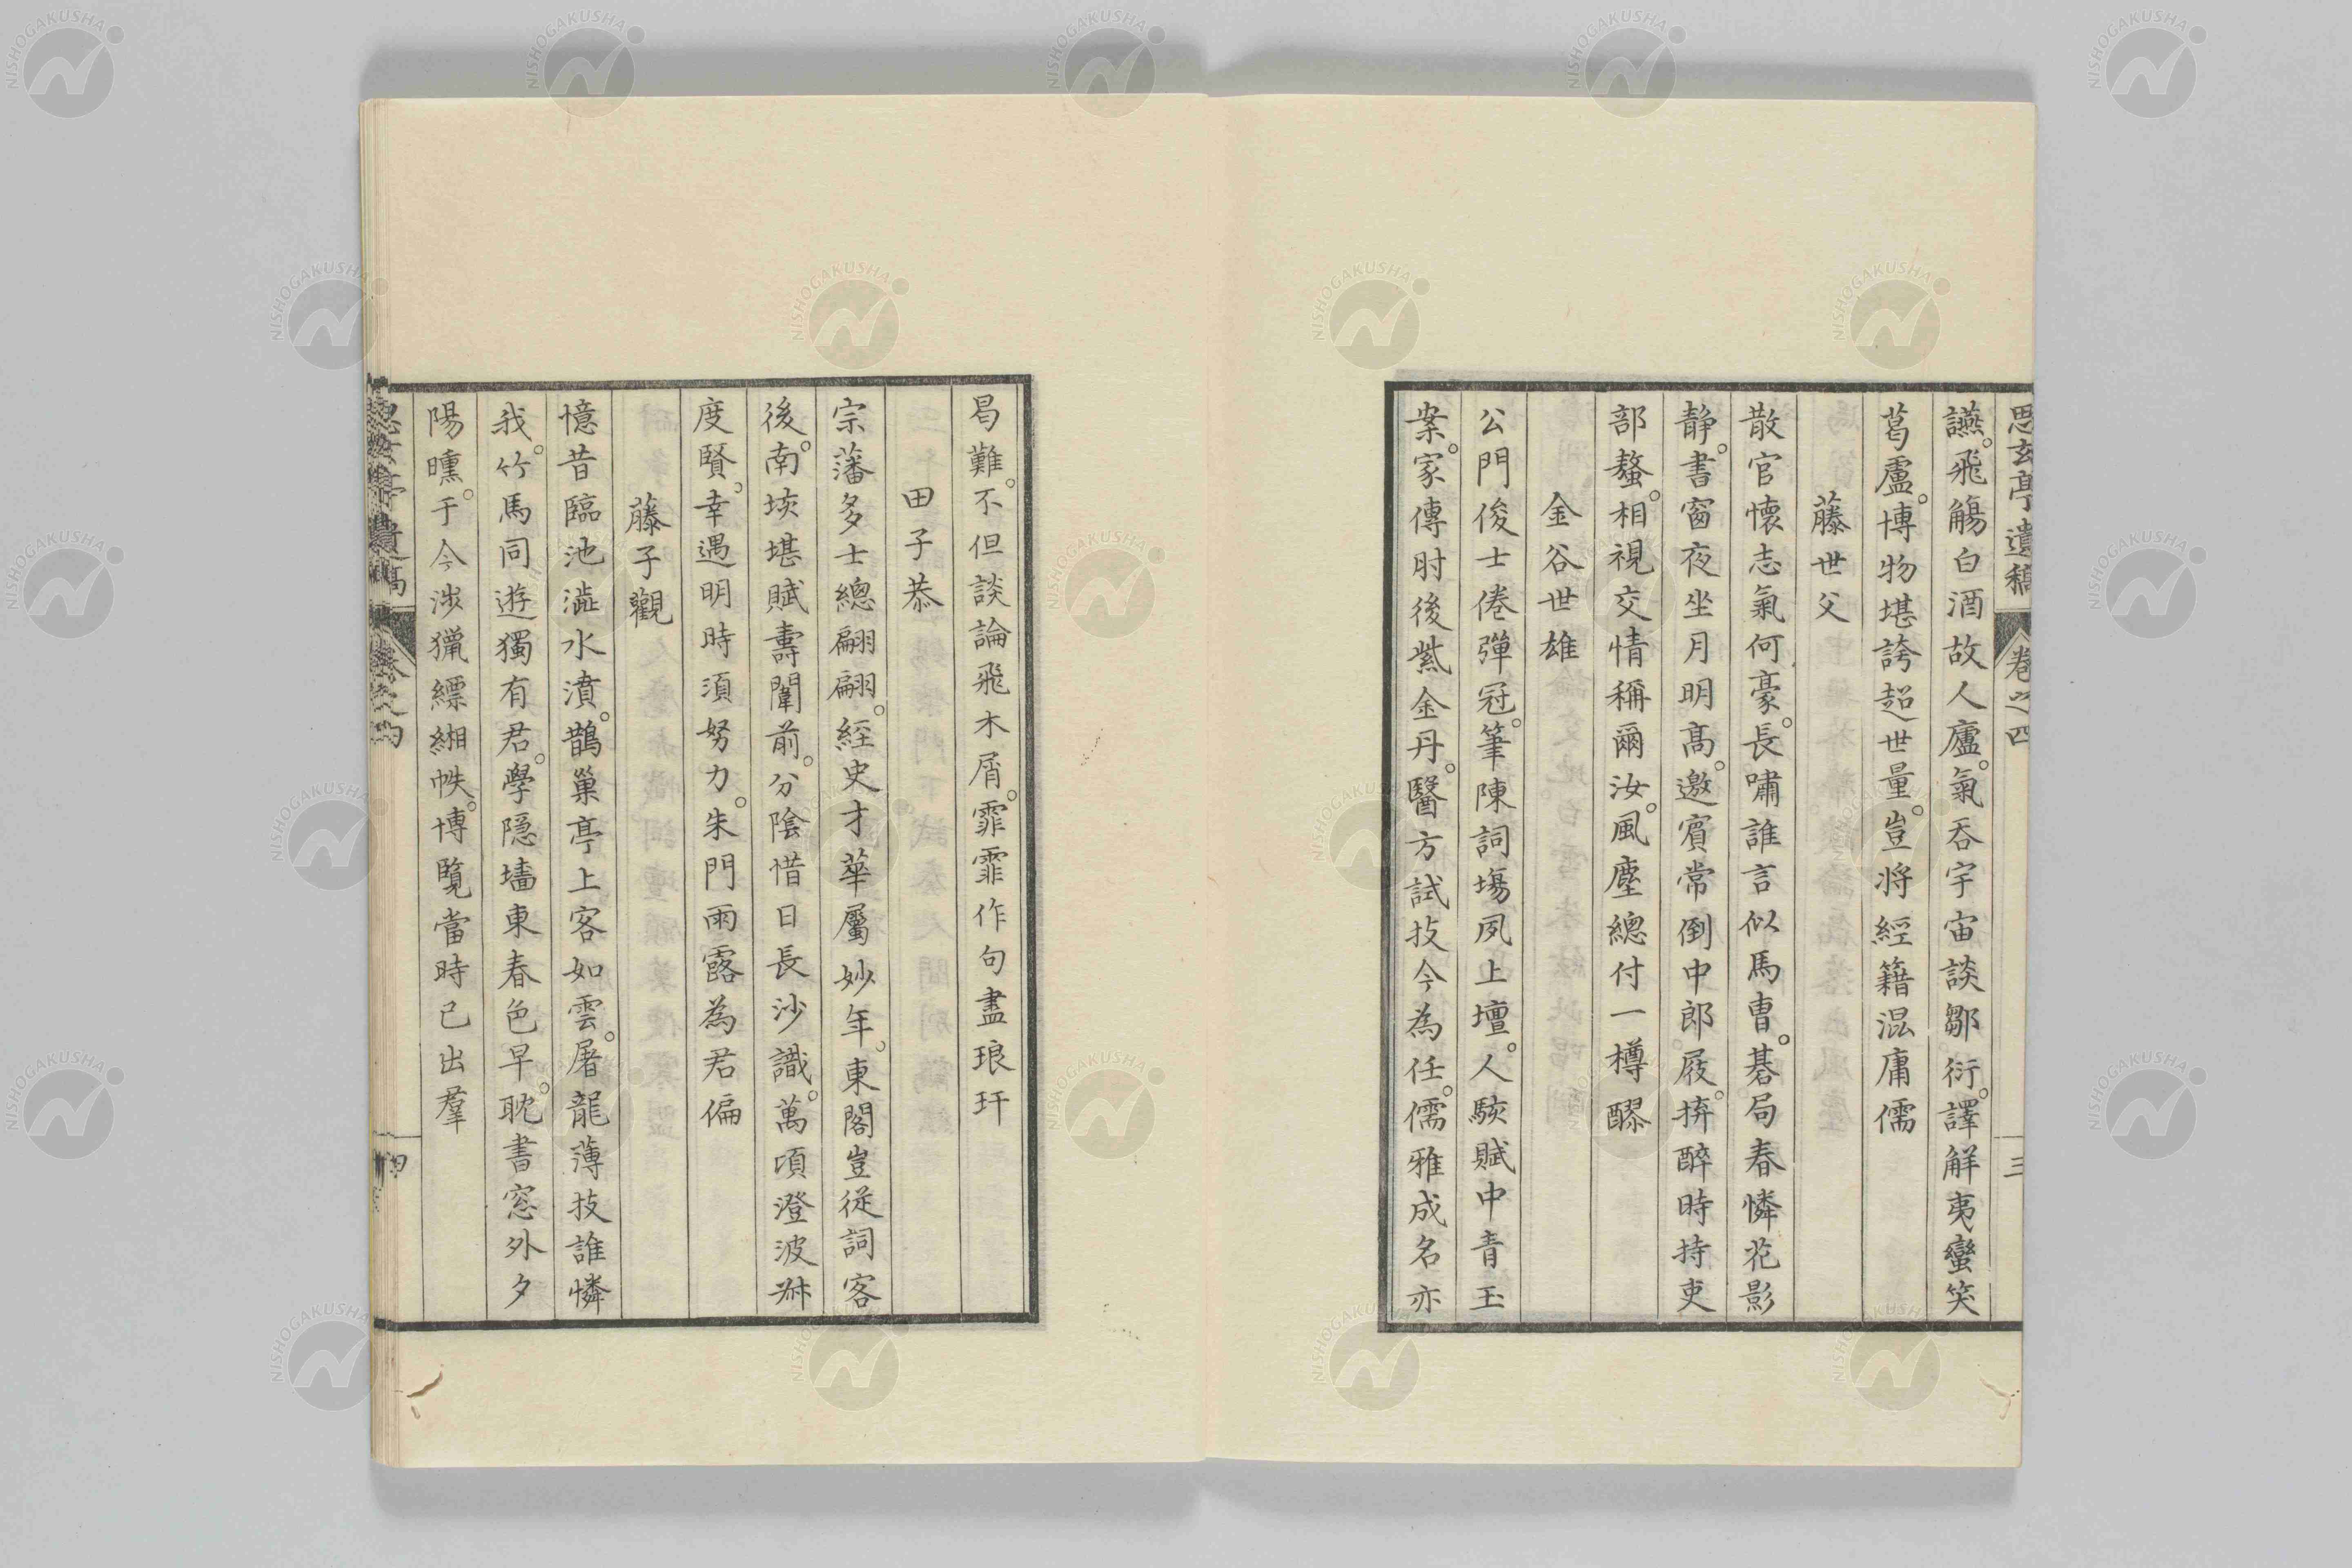 思玄亭遺稿 卷之四 三
讌。飛觴白酒故人廬。氣吞宇宙談鄒衍。譯解夷蠻笑
葛盧。博物堪誇超世量。豈将經籍混庸儒
藤世父
散官懷志氣何豪。長嘯誰言似馬曹。碁局春憐花影
静。書窗夜坐月明髙。邀賓常倒中郎屐。拚醉時持吏
部螯。相視交情稱爾汝。風塵總付一樽醪
金谷世雄
公門俊士倦彈冠。筆陳詞塲夙上壇。人駭賦中青玉
案。家傳肘後紫金丹。醫方試技今為任。儒雅成名亦
曷難。不但談論飛木屑。霏霏作句盡琅玕
田子恭
宗藩多士總翩翩。經史才華屬妙年。東閣豈従詞客
後。南垓堪賦壽闈前。分陰惜日長沙識。萬頃澄波
度賢。幸遇明時須努力。朱門雨露為君偏
藤子觀
憶昔臨池澁水濆。鵲巢亭上客如雲。屠龍薄技誰憐
我。竹馬同遊獨有君。學隠墻東春色早。耽書窓外夕
陽曛。于今涉獵縹緗帙。博覧當時已出羣
思玄亭遺稿 卷之四 四
NISHOGAKUSHA